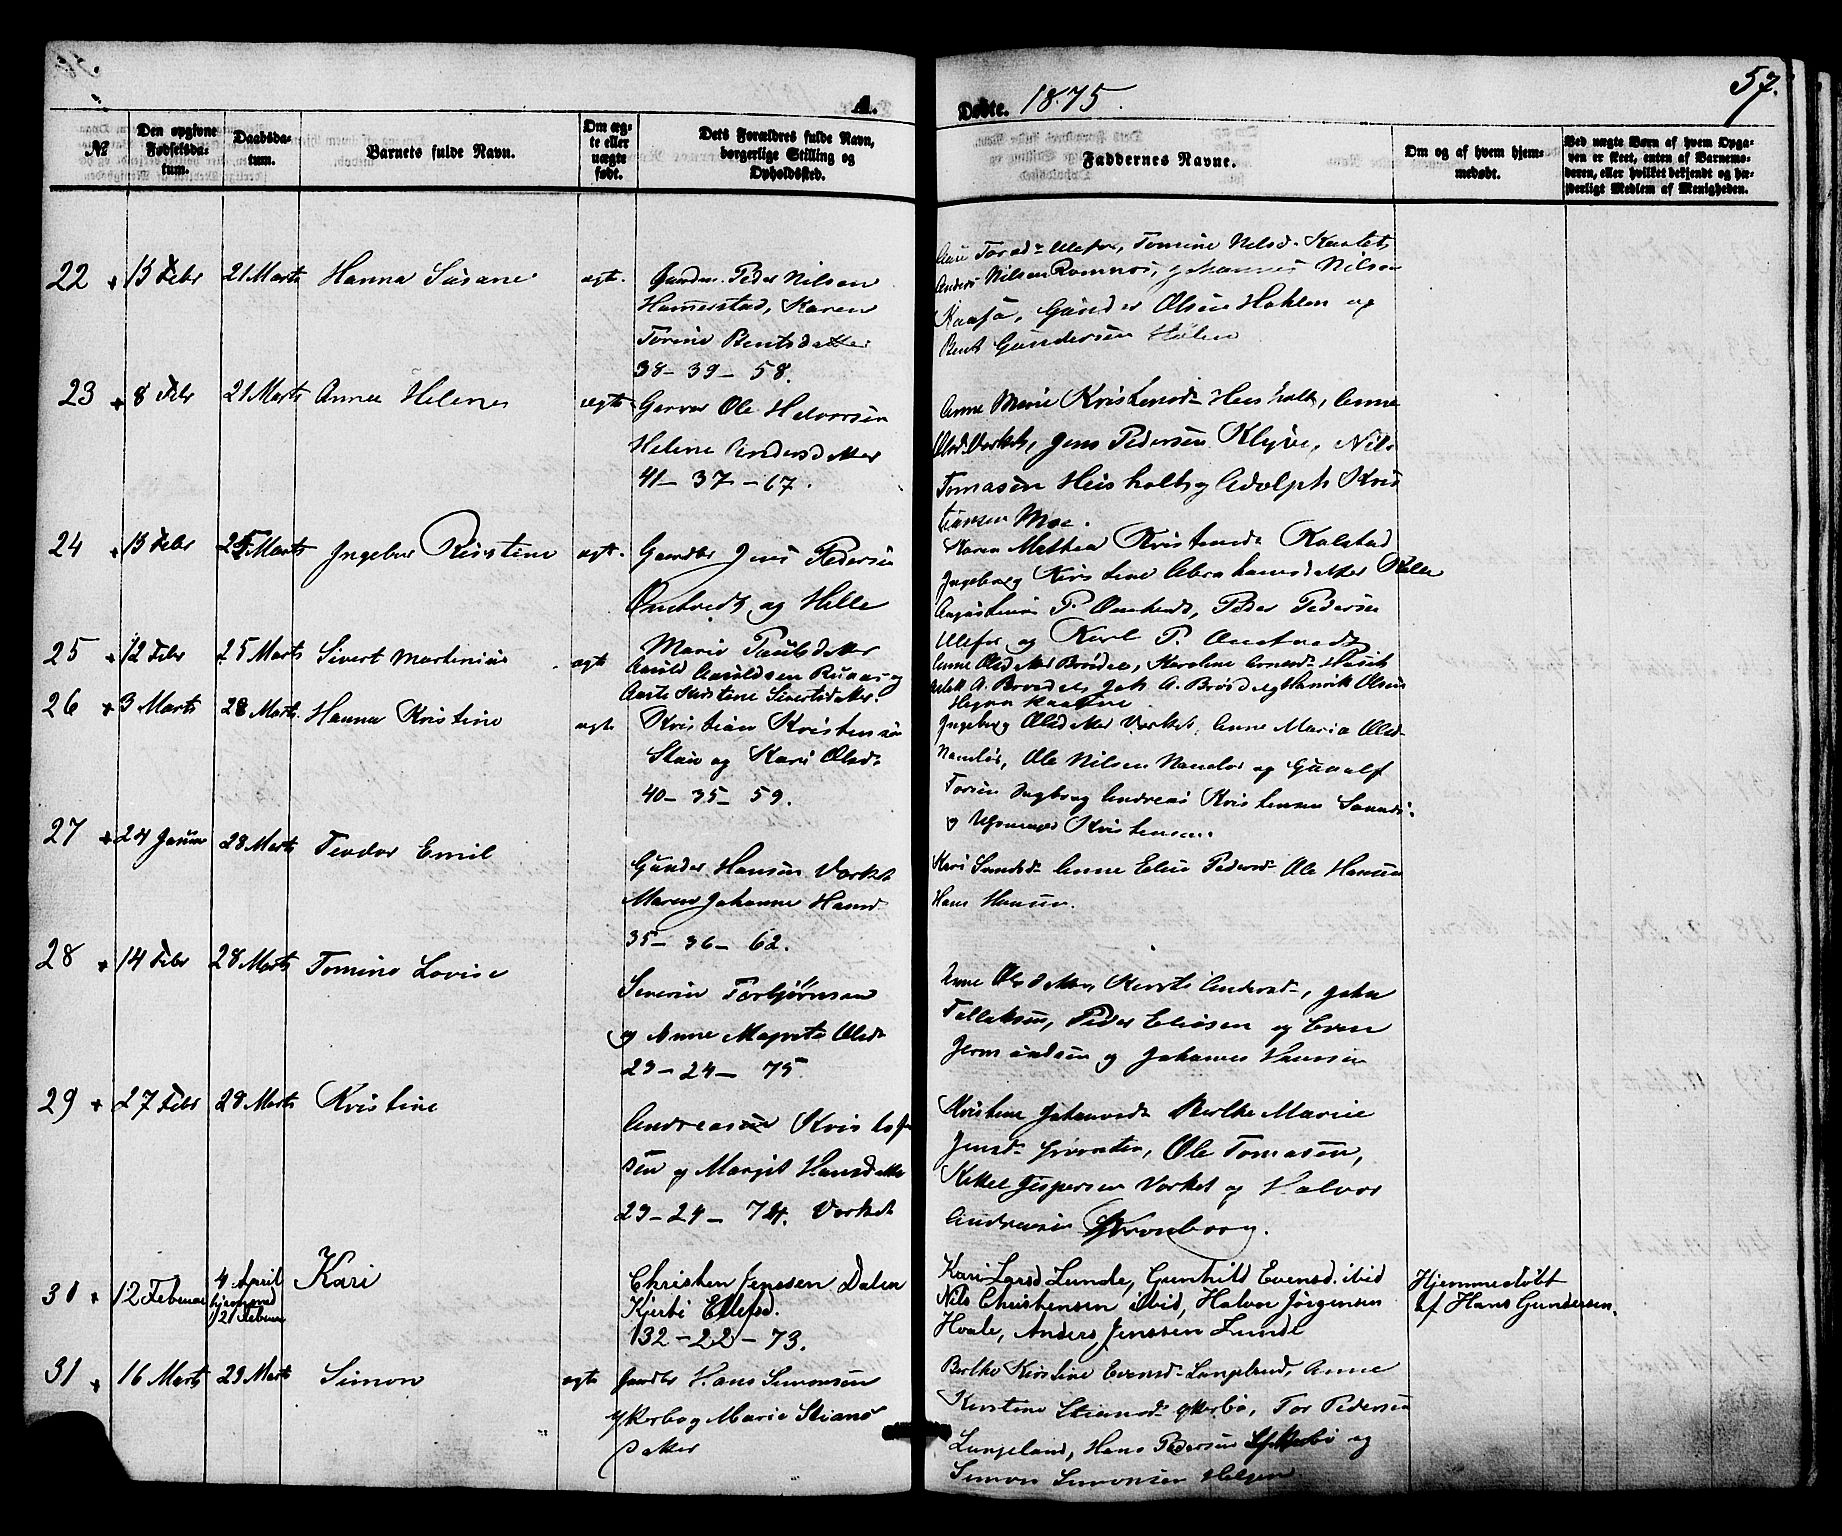 A.
Døbte. 1875.
57.
№
Den opgivne Fødselsdatum.
Daabsdatum.
Barnets fulde Navn.
Om ægte eller uægte født.
Dets Forældres fulde Navn, borgerlige Stilling og Opholdssted.
Faddernes Navne.
Om og af hvem hjemmedøbt.
Ved uægte Børn af hvem Opgaven er skeet, enten af Barnemoderen, eller hvilket bekjendt og hæderligt Medlem af Menigheden.
22 13 Febr 21 Marts Hanna Susane ægt. Peder Nilsen
Hamerstad, Karen
Torine Bentsdatter
38 - 39 - 58.
Tomine Nilsd.
Anders Nilsen Romnos, Johannes Nilsen
Kaasa, Gunder Olsen Haklen og
Bent Gundersen Hølen
23 8 Febr 21 Marts Anne Helene ægte Garver Ole Halvorsen
Helene Andersdatter
41 - 37 - 67.
Anne Marie Kristensd. Heisholt, Anne
Olsd. Værket, Jens Pedersen Klyve, Nils
Tomasen Heisholt og Adolph Kris
tiansen Moe.
24 13 Febr 25 Marts Ingebor Kirstine ægt. Gaardbr Jens Pedersen
Omtvedt og Helle
Marie Paulsdatter
Karen Mathea Kristensd. Kalstad
Ingeborg Kirstine Abrahamsdatter
P. Omtvedt, Peder Pedersen
Ulefos og Karl P. Omtvedt
25 12 Febr 25 Marts Sivert Martinius ægt
Aasold Aasoldsen og
Aaste Kirstine Sivertsdatter.
Anne Olsdatter Brødsø, Karoline
Joh. A. Brødsø og Henrik Olsen
26 3 Marts 28 Marts. Hanna Kristine ægt Kristian Kristensen
og Kari Olsd.
40 - 35 - 59.
Ingeborg Olsdatter Værket, Anne Maria Olsd.
Namløs, Ole Nilsen Namløs og
Andreas Kristensen
og Kristensen.
27 24 Januar 28 Marts Teodor Emil
Gunder Hansen Værket
Maren Johanne Hansd
35 - 36 - 62.
Kari Anne Elise Pedersd. Ole Hansen
Hans Hansen.
28 14 Febr 28 Marts Tomine Lovise
Severin Torbjørnsen
og Anne Magrete Olsd.
23 - 24 - 75
Anne Olsdatter, Kirsti Andersd., John
Tellefsen, Peder Eliasen og Even
Jermundsen og Johannes Hansen
29 27 Febr 28 Marts Kristine
Andreas Kristof
sen og Margit Hansdatter
23 - 24 - 74. Værket
Kristine Johannesd. Berthe Marie
Jensd. Ole Tomasen,
Kittel Jespersen Værket og Halvor
Andreasen Kronborg.
31 12 Februar 4 April
hjemmed
21 Febuar
Kari
Christen Jenssen Dalen
Kjersti Ellefsd.
132 - 22 - 73.
Kari Larsd. Lunde, Gunhild Evensd. ibid
Nils Christensen ibid, Halvor Jørgensen
Hvale, Anders Jenssen Lunde
Hjemmedøbt
af Hans Gundersen.
31 16 Marts 29 Marts Simon ægt Gaardbr Hans Simonsen
Ytterbø og Marie Stians
datter
Berthe Kirstine Evensd. Langeland, Anne
Kirstine Stiansd. Ytterbø, Tor Pedersen
Langeland, Hans Pedersen Ytterbø og
Simon Simonsen Helgen